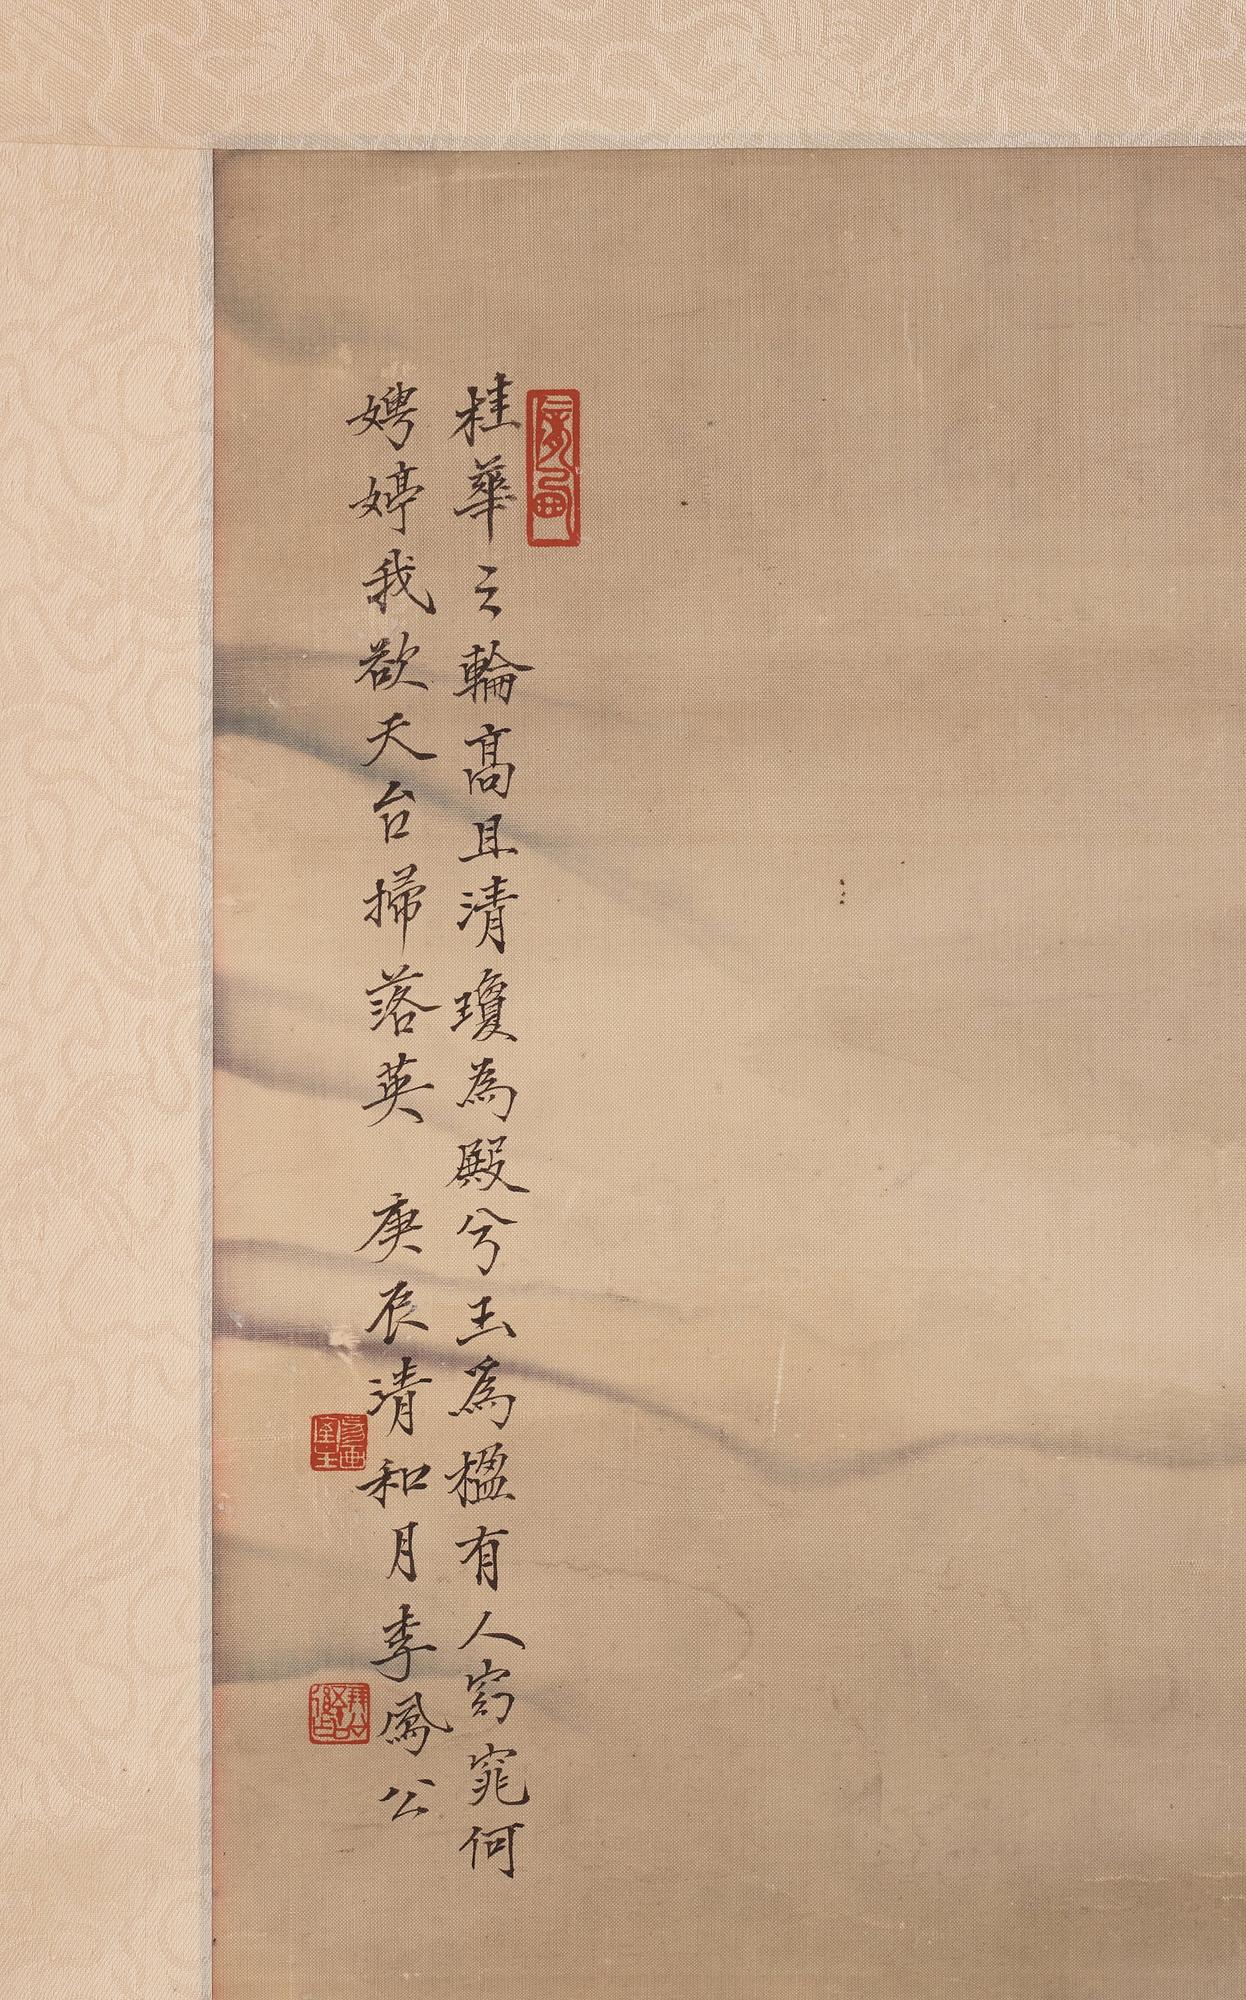 桂華之輪高且清瓊為殿兮玉為楹有人窈窕何
娉婷我欲天台掃落英 庚辰清和月李鳳公